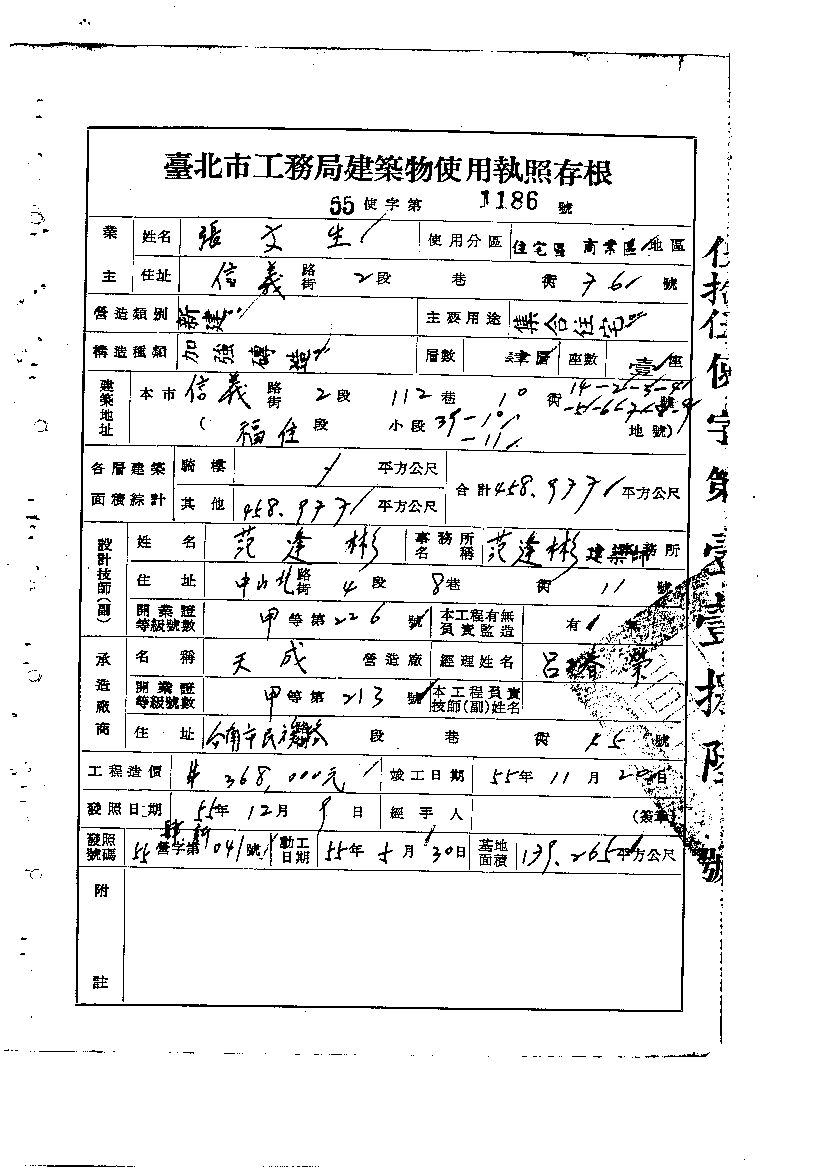 臺北市工務局建築物使用執照存根
55 使字第 1186 號
業主 姓名 張文生 使用分區 住宅區 商業區 地區
住址 信義 路街 2段 巷 衖 76 號
營造類別 新建 主要用途 集合住宅
構造種類 加強磚造 層數 肆層 座數 壹座
建築地址 本市 信義 路街 2段 112巷 10 衖 號
( 福住 段 小段 39-10 -11 地號)
各層建築面積綜計 騎樓 平方公尺 合計 458.977 平方公尺
其他 458.977 平方公尺
設計技師(副) 姓名 范逢彬 事務所名稱 范逢彬建築師事務所
住址 中山北 路街 4段 8巷 衖 11 號
開業證等級號數 甲等第226號 本工程有無負責監造 有
承造廠商 名稱 天成 營造廠 經理姓名 呂春榮
開業證等級號數 甲等第213號 本工程負責技師(副)姓名
住址 台南市民族路 段 巷 衖 號
工程造價 $ 368,000元 竣工日期 55年11月20日
發照日期 55年12月9日 經手人 (簽章)
發照號碼 55 營字第 041 號 動工日期 55年5月30日 基地面積 139.265平方公尺
附註
伍拾伍使字第壹壹捌陸號